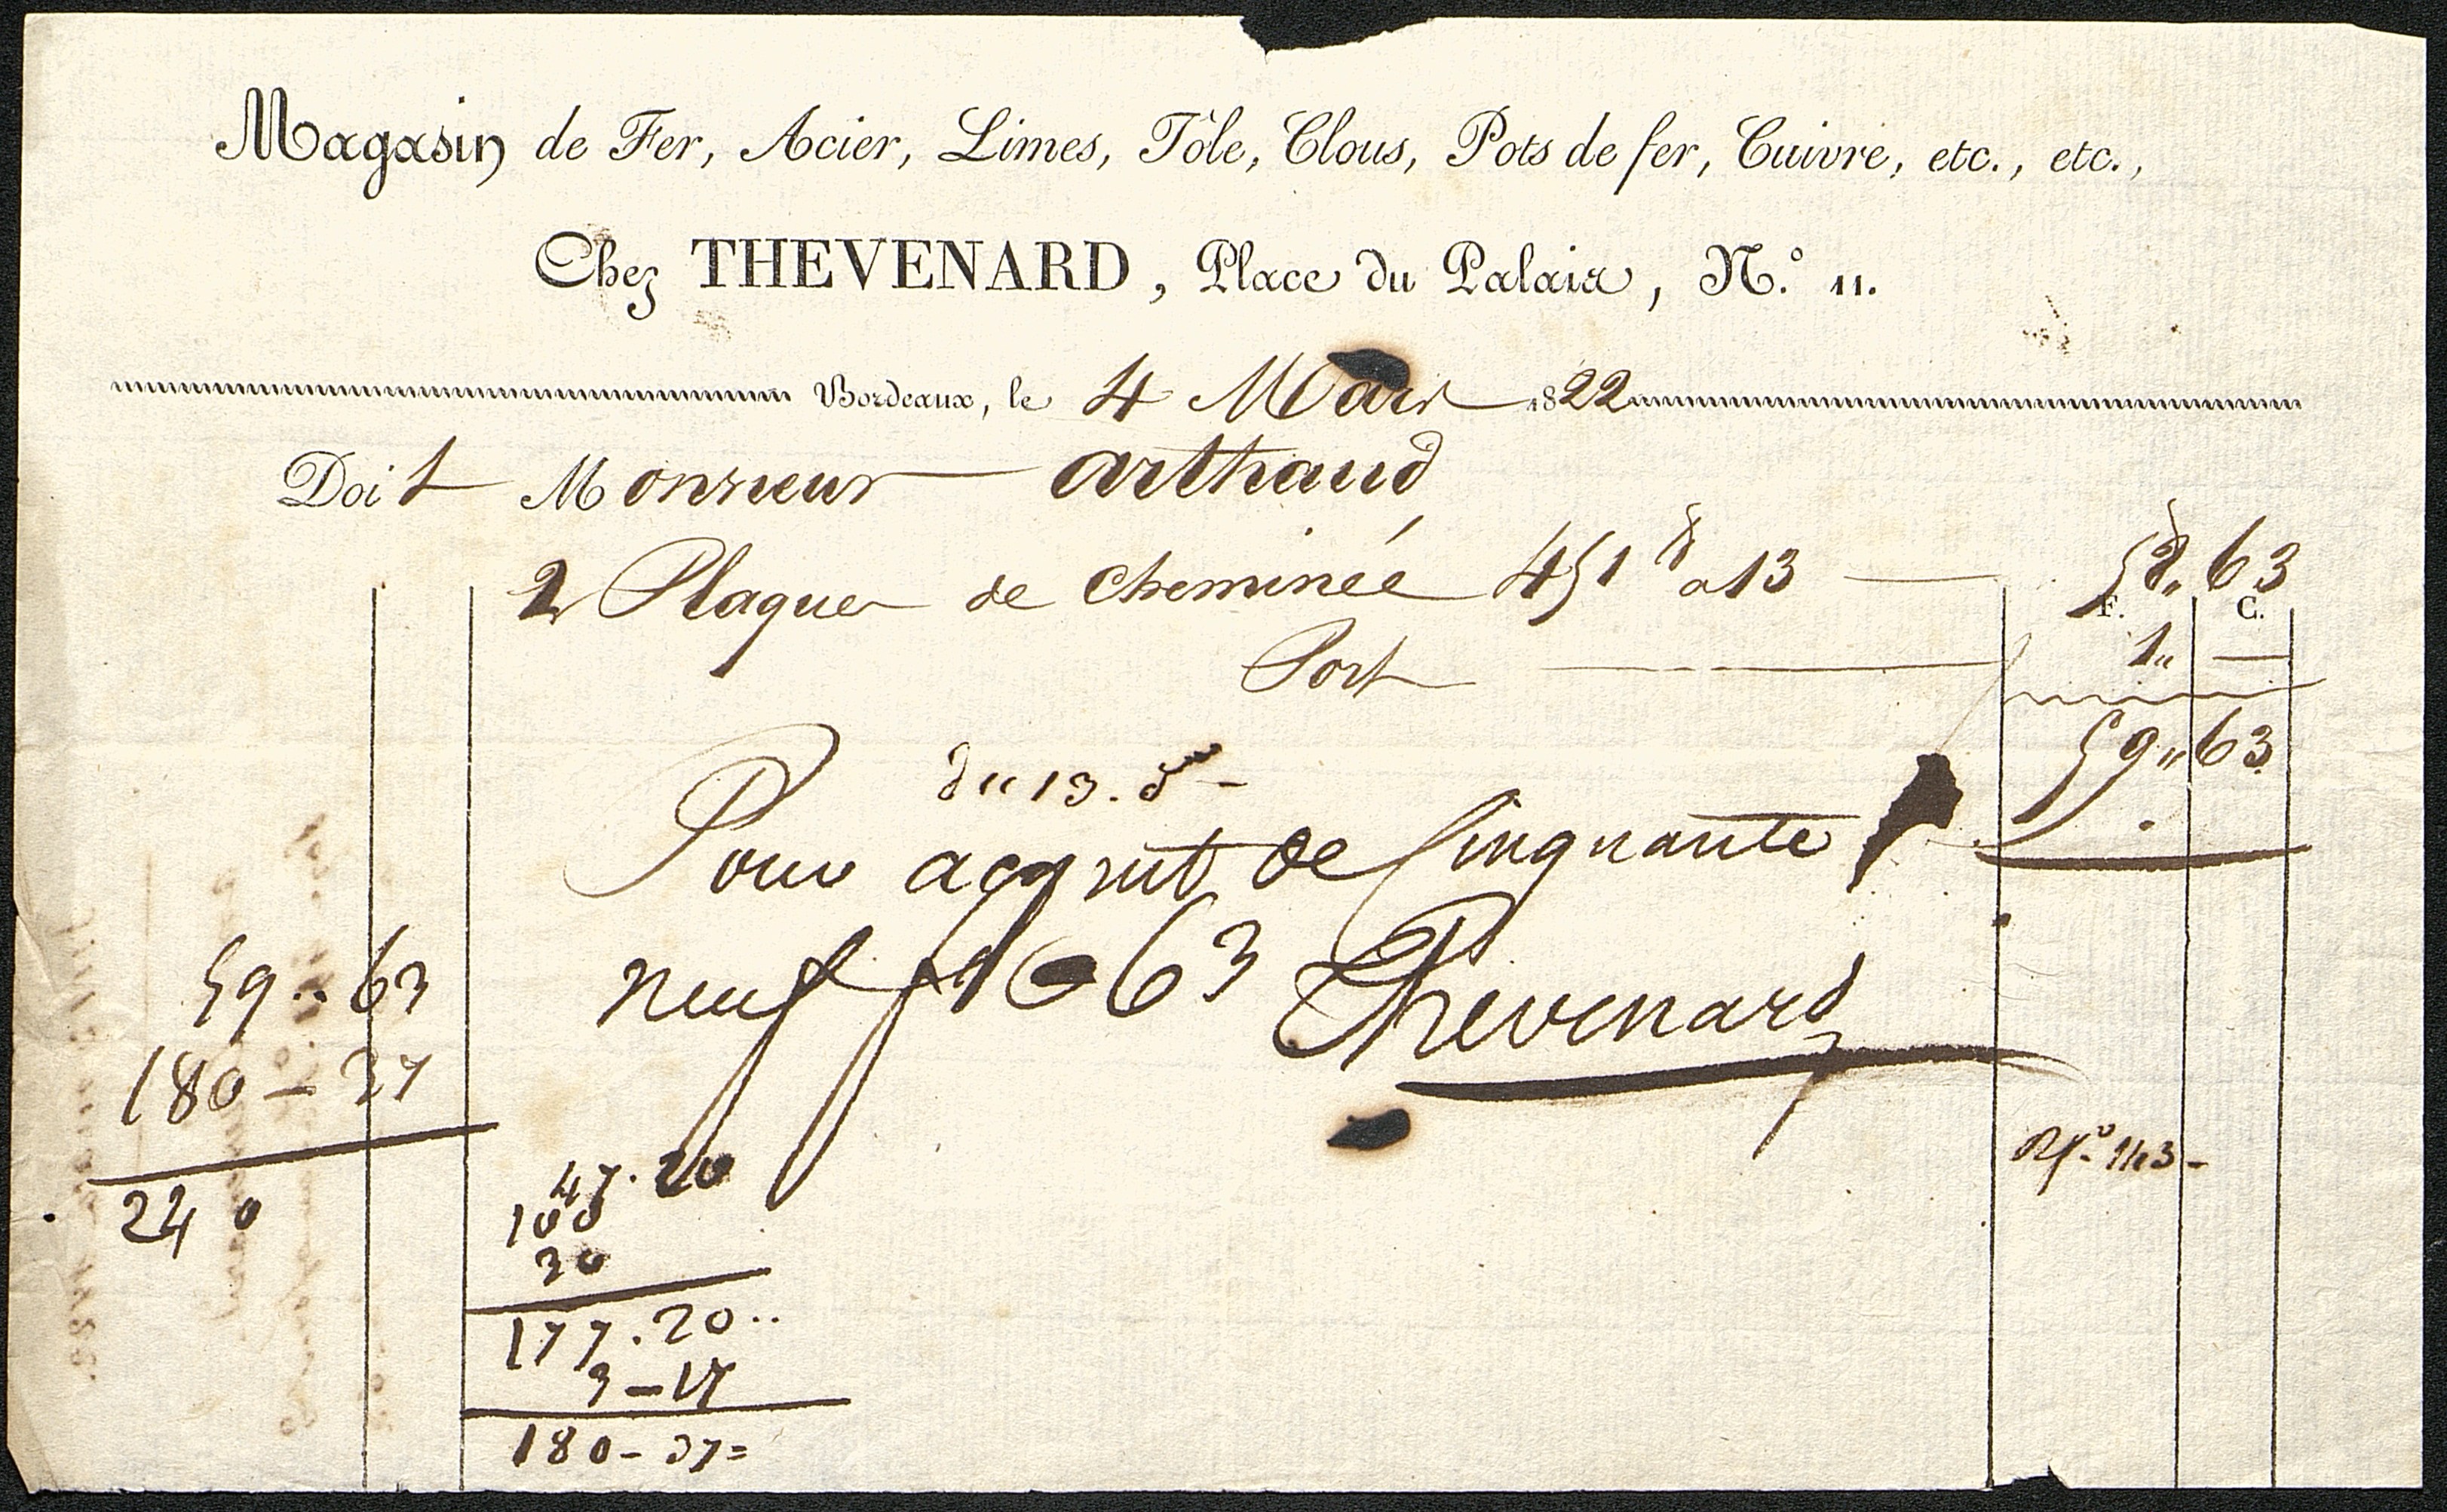 Magasin de Fer, Acier, Limes, Tôle, Clous, Pots de fer, Cuivre, etc., etc.,
Chez THEVENARD, Place du Palais, N.° 11.
Bordeaux, le 4 Mars 1822
Doit Monsieur arthaud
2 Plaques de Cheminée 451 à 13 — 58,, 63
F. C.
Port — 1,, —
59,, 63
du 13. d
Pour acquit de Cinquante
neuf f 63 Thevenard
59 .. 63
180 — 37
240
143 -
47. 20
100
30
177. 20 ..
3 — 17
180 - 37 =